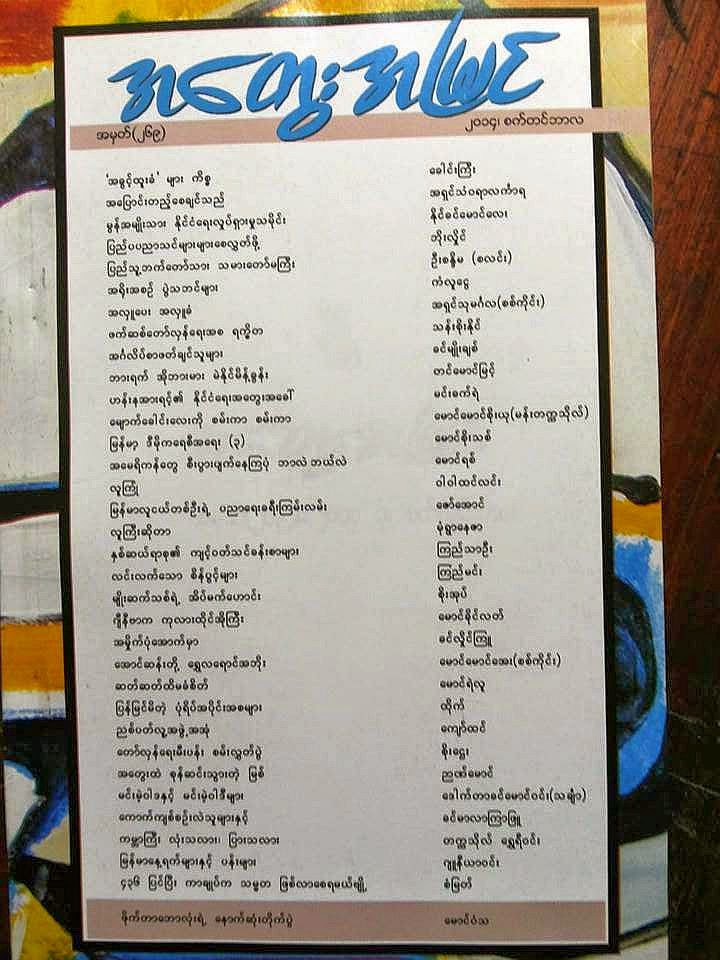 အတွေးအမြင်
အမှတ်(၂၆၉) ၂၀၁၄၊ စက်တင်ဘာလ
'အခွင့်ထူးခံ' များ ကိစ္စ ခေါင်းကြီး
အပြောင်းတည့်စေချင်သည် အရှင်သံဝရာလင်္ကာရ
မွန်အမျိုးသား နိုင်ငံရေးလှုပ်ရှားမှုသမိုင်း နိုင်ခင်မောင်လေး
ပြည်ပပညာသင်များများစေလွှတ်ဖို့ ဘိုးလှိုင်
ပြည်သူ့ဘက်တော်သား သမားတော်မကြီး ဦးစန္ဒိမ (စလင်း)
အရိုးအစဉ် ပွဲသဘင်များ ကံလူငွေ
အလှူပေး အလှူခံ အရှင်သုမင်္ဂလ(စစ်ကိုင်း)
ဖက်ဆစ်တော်လှန်ရေးအစ ရက္ခိတ သန်းစိုးနိုင်
အင်္ဂလိပ်စာဖတ်ချင်သူများ ခင်မျိုးချစ်
ဘားရက် အိုဘားမား မဲနိုင်မိန့်ခွန်း တင်မောင်မြင့်
ဟန်းနအားရင့်၏ နိုင်ငံရေးအတွေးအခေါ် မင်းခက်ရဲ
မျောက်ခေါင်းလေးကို စမ်းကာ စမ်းကာ မောင်မောင်စိုးယု(မန်းတက္ကသိုလ်)
မြန်မာ့ ဒီမိုကရေစီအရေး (၃) မောင်စိုးသစ်
အမေရိကန်တွေ စီးပွားပျက်နေကြပုံ ဘာလဲ ဘယ်လဲ မောင်ရစ်
လူကြုံ ဝါဝါထင်လင်း
မြန်မာလူငယ်တစ်ဦးရဲ့ ပညာရေးခရီးကြမ်းလမ်း ဇော်အောင်
လူကြီးဆိုတာ မုံရွာနေဇာ
နှစ်ဆယ်ရာစု၏ ကျင့်ဝတ်သင်ခန်းစာများ ကြည်သာဦး
လင်းလက်သော စိန်ပွင့်များ ကြည်မင်း
မျိုးဆက်သစ်ရဲ့ အိပ်မက်ဟောင်း စိုးအုပ်
ဂျီနီဗာက ကုလားထိုင်အိုကြီး မောင်ခိုင်လတ်
အမှိုက်ပုံအောက်မှာ ခင်လှိုင်ကြူ
အောင်ဆန်းတို့ ရွှေလရောင်အဘိုး မောင်မောင်အေး(စစ်ကိုင်း)
ဆတ်ဆတ်ထိမခံစိတ် မောင်ရဲလူ
ပြန်မြင်မိတဲ့ ပုံရိပ်အပိုင်းအစများ ထိုက်
ညစ်ပတ်လူ့အဖွဲ့အအုံ ကျော်ထင်
တော်လှန်ရေးမီးပန်း စမ်းလွှတ်ပွဲ စိုးဌေး
အတွေးထဲ စုန်ဆင်းသွားတဲ့ မြစ် ညဏ်မောင်
မင်းမဲ့ဝါဒနှင့် မင်းမဲ့ဝါဒီများ ဒေါက်တာခင်မောင်ဝင်း(သင်္ချာ)
ကောက်ကျစ်စဉ်းလဲသူများနှင့် ခင်မာလာကြာဖြူ
ကမ္ဘာကြီး လုံးသလား၊ ပြားသလား တက္ကသိုလ် ရွှေရီဝင်း
မြန်မာနေ့ရက်များနှင့် ပန်းများ ဂျူနီယာဝင်း
၄၃၆ ပြင်ပြီး ကာချုပ်က သမ္မတ ဖြစ်လာစေရမယ်ချို့ ခံမြတ်
ဖိုက်တာဘောလုံးရဲ့ နောက်ဆုံးတိုက်ပွဲ မောင်ဝံသ